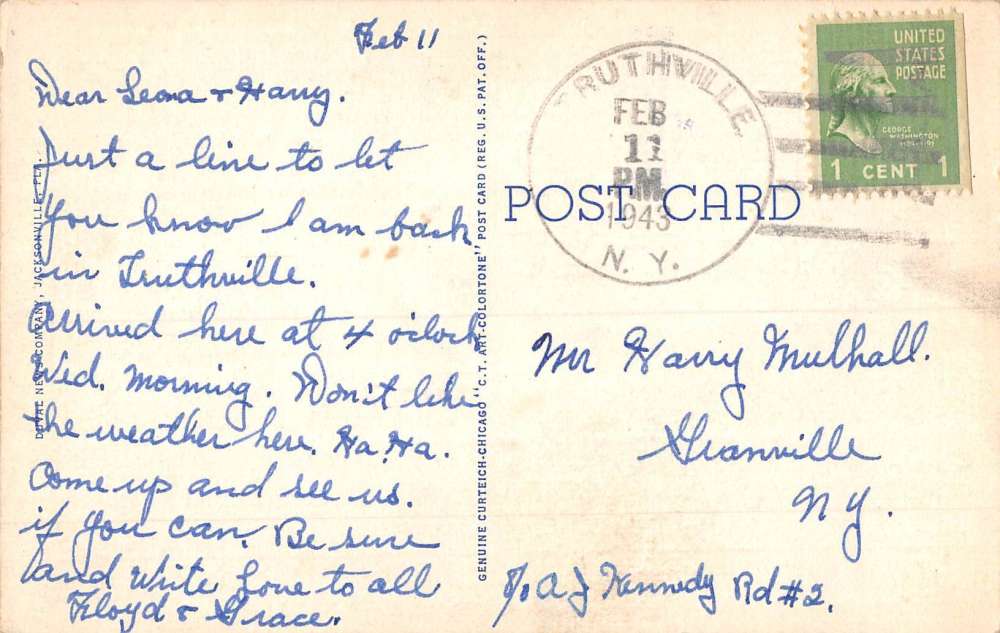 Feb 11
Dear Leona & Harry.
Just a line to let
you know I am back
in Truthville.
Arrived here at 4 o'clock
Wed. morning. Don't like
the weather here. Ha. Ha.
Come up and see us.
if you can. Be sure
and write Love to all
Floyd & Grace.
DUVAL NEWS COMPANY, JACKSONVILLE, FLA.
GENUINE CURTEICH-CHICAGO "C.T. ART-COLORTONE" POST CARD (REG. U.S. PAT. OFF.)
TRUTHVILLE
FEB
11
PM
1943
N. Y.
UNITED
STATES
POSTAGE
GEORGE
WASHINGTON
1 CENT 1
POST CARD
Mr Harry Mulhall.
Granville
N y.
c/o A J Kennedy Rd #2.